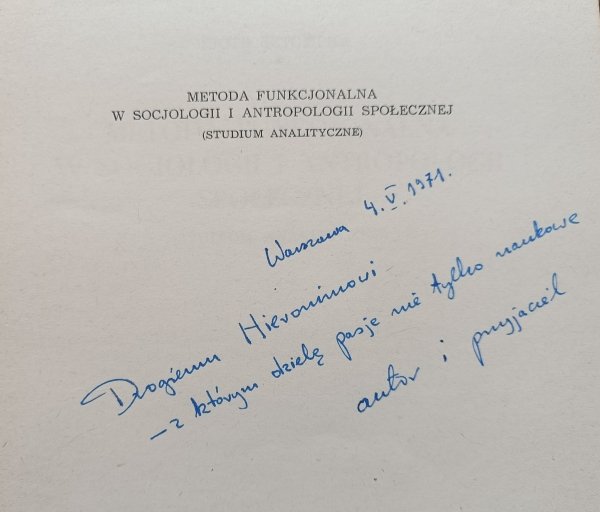 METODA FUNKCJONALNA
W SOCJOLOGII I ANTROPOLOGII SPOŁECZNEJ
(STUDIUM ANALITYCZNE)
Warszawa 4.V.1971.
Drogiemu Hieronimowi
– z którym dzielę pasje nie tylko naukowe
autor i przyjaciel